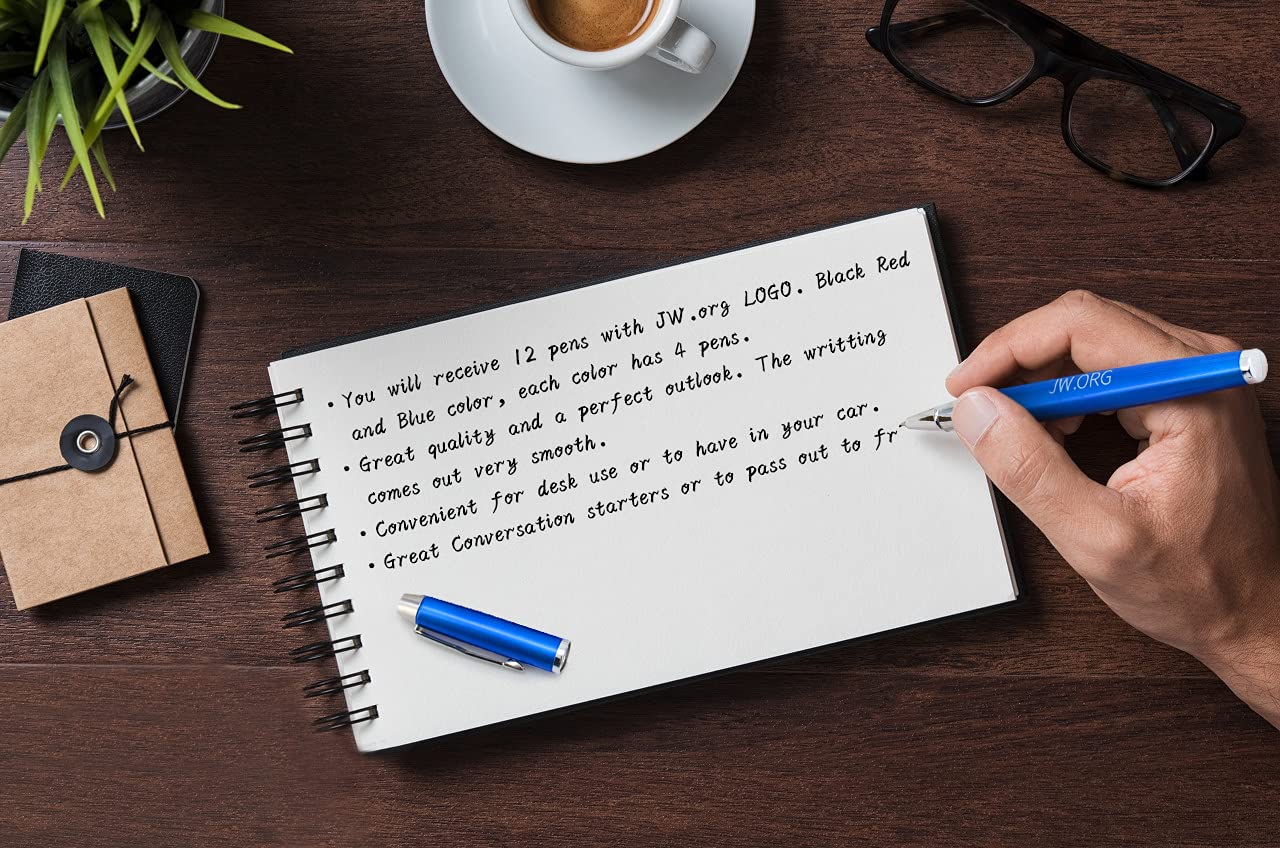 • You will receive 12 pens with JW.org LOGO. Black Red
and Blue color, each color has 4 pens.
• Great quality and a perfect outlook. The writting
comes out very smooth.
• Convenient for desk use or to have in your car.
• Great Conversation starters or to pass out to fr
JW.ORG